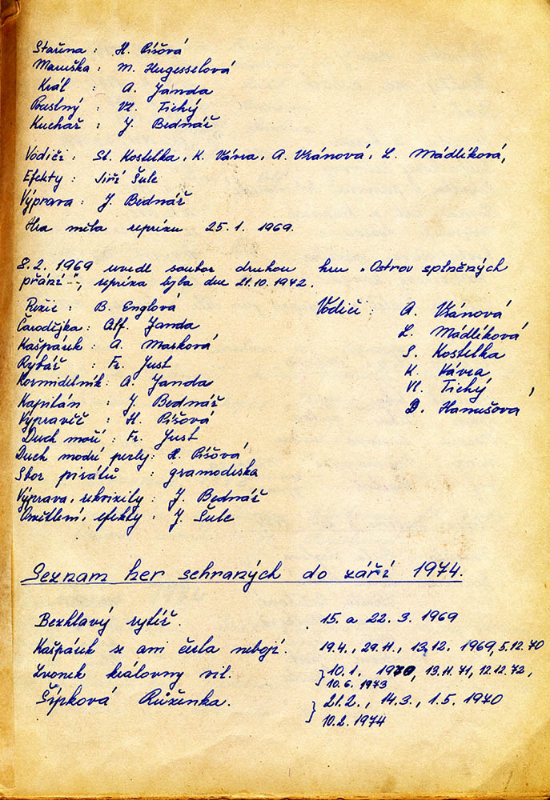 Stařena : H. Píšová
Maruška : M. Hugesselová
Král : A. Janda
Poustný : Vl. Tichý
Kuchař : J. Bednář
Vodiči : St. Kostelka, K. Vávra, A. Vránová, L. Mádlíková,
Efekty : Jiří Šule
Výprava : J. Bednář
Hra měla reprízu 25.1. 1969.
8.2. 1969 uvedl soubor druhou hru „Ostrov splněných
přání", repríza byla dne 21.10.1972.
Režie : B. Englová
Čarodějka : Alf. Janda
Kašpárek : A. Marková
Rybář : Fr. Just
Kormidelník : A. Janda
Kapitán : J. Bednář
Vypravěč : H. Píšová
Duch moří : Fr. Just
Duch modré perly : H. Píšová
Sbor pirátů : gramodeska
Výprava, rekvizity : J. Bednář
Osvětlení, efekty : J. Šule
Vodiči : A. Vránová
L. Mádlíková
S. Kostelka
K. Vávra
Vl. Tichý
D. Hanušova
Seznam her sehraných do září 1974.
Bezhlavý rytíř. 15. a 22. 3. 1969
Kašpárek se ani čerta nebojí. 19.4., 29.11., 13.12. 1969, 5.12.70
Zvonek královny vil. 10.1. 1970, 13.11.71, 12.12.72,
10.6. 1973
Šípková Růženka. 21.2., 14.3., 1.5. 1970
10.2. 1974